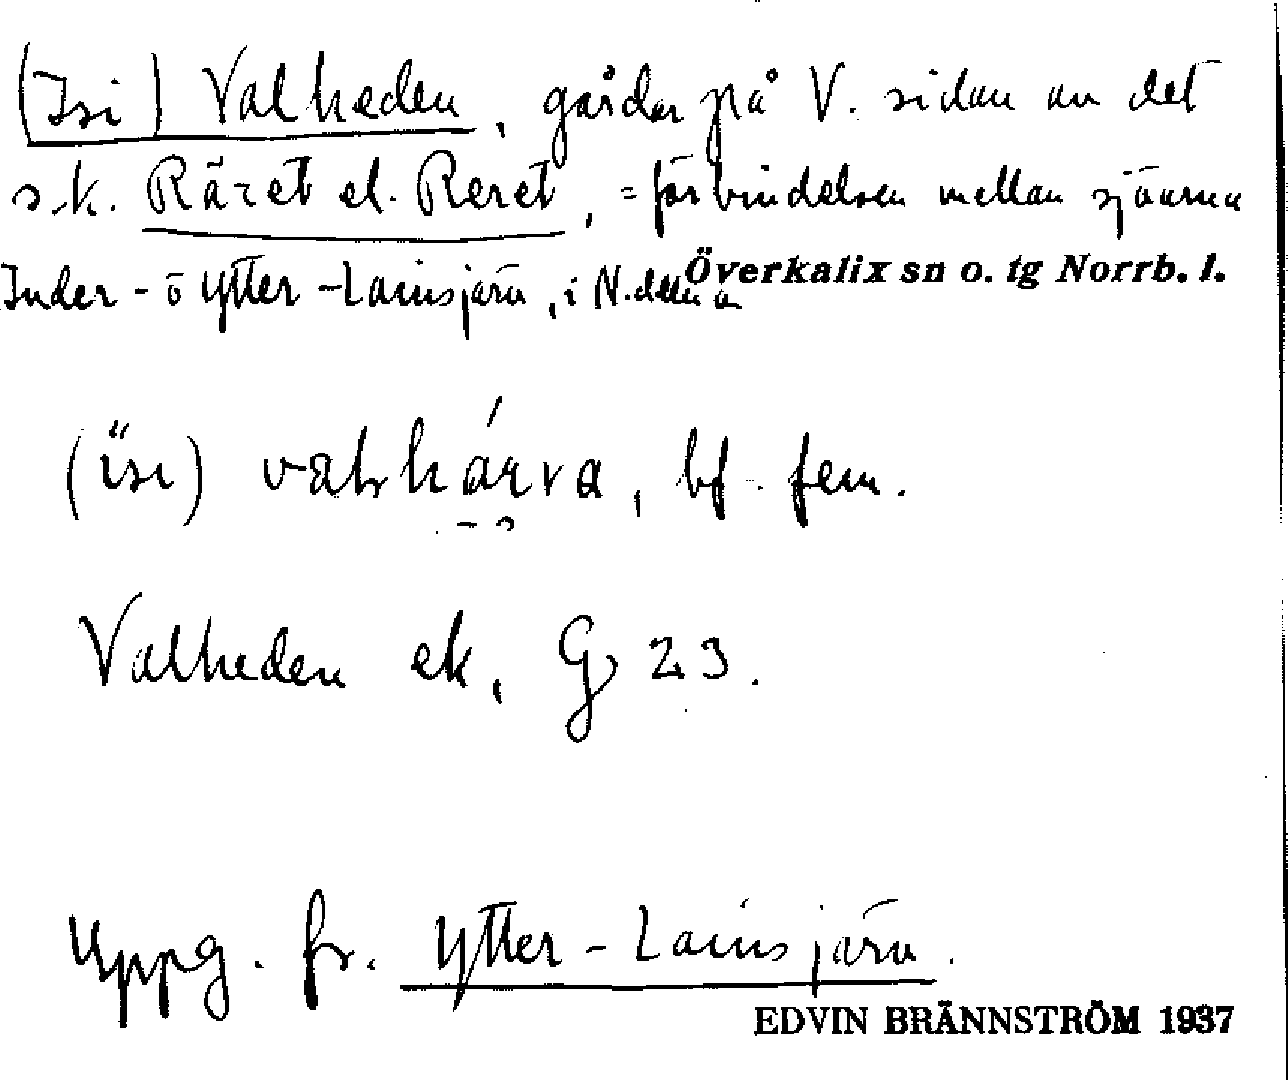 (Isi) Valheden, gårdar på V. sidan av det
s.k. Räret el. Reret, = förbindelsen mellan sjöarna
Inder- o Ytter-Lainsjärv, i N. delen av
Överkalix sn o. tg Norrb. l.
bf. fem.
Valheden ek, G 23.
Uppg. fr. Ytter-Lainsjärv.
EDVIN BRÄNNSTRÖM 1937